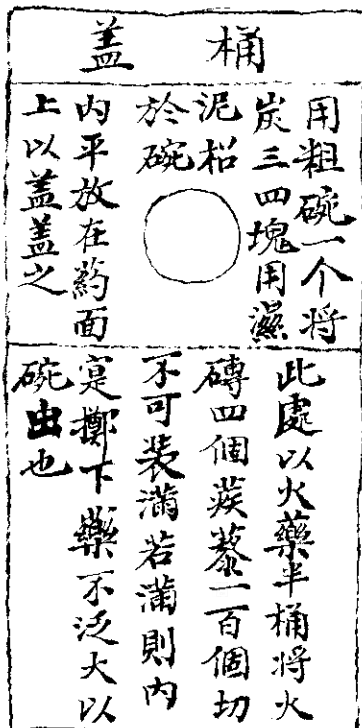 桶盖
用粗碗一个将
炭三四塊用濕
泥
於碗
內平放在葯面
上以盖盖之
此處以火藥半桶将火
磚四個蒺藜一百個切
不可装滿若滿則內
寔擲下藥不泛火以
碗出也